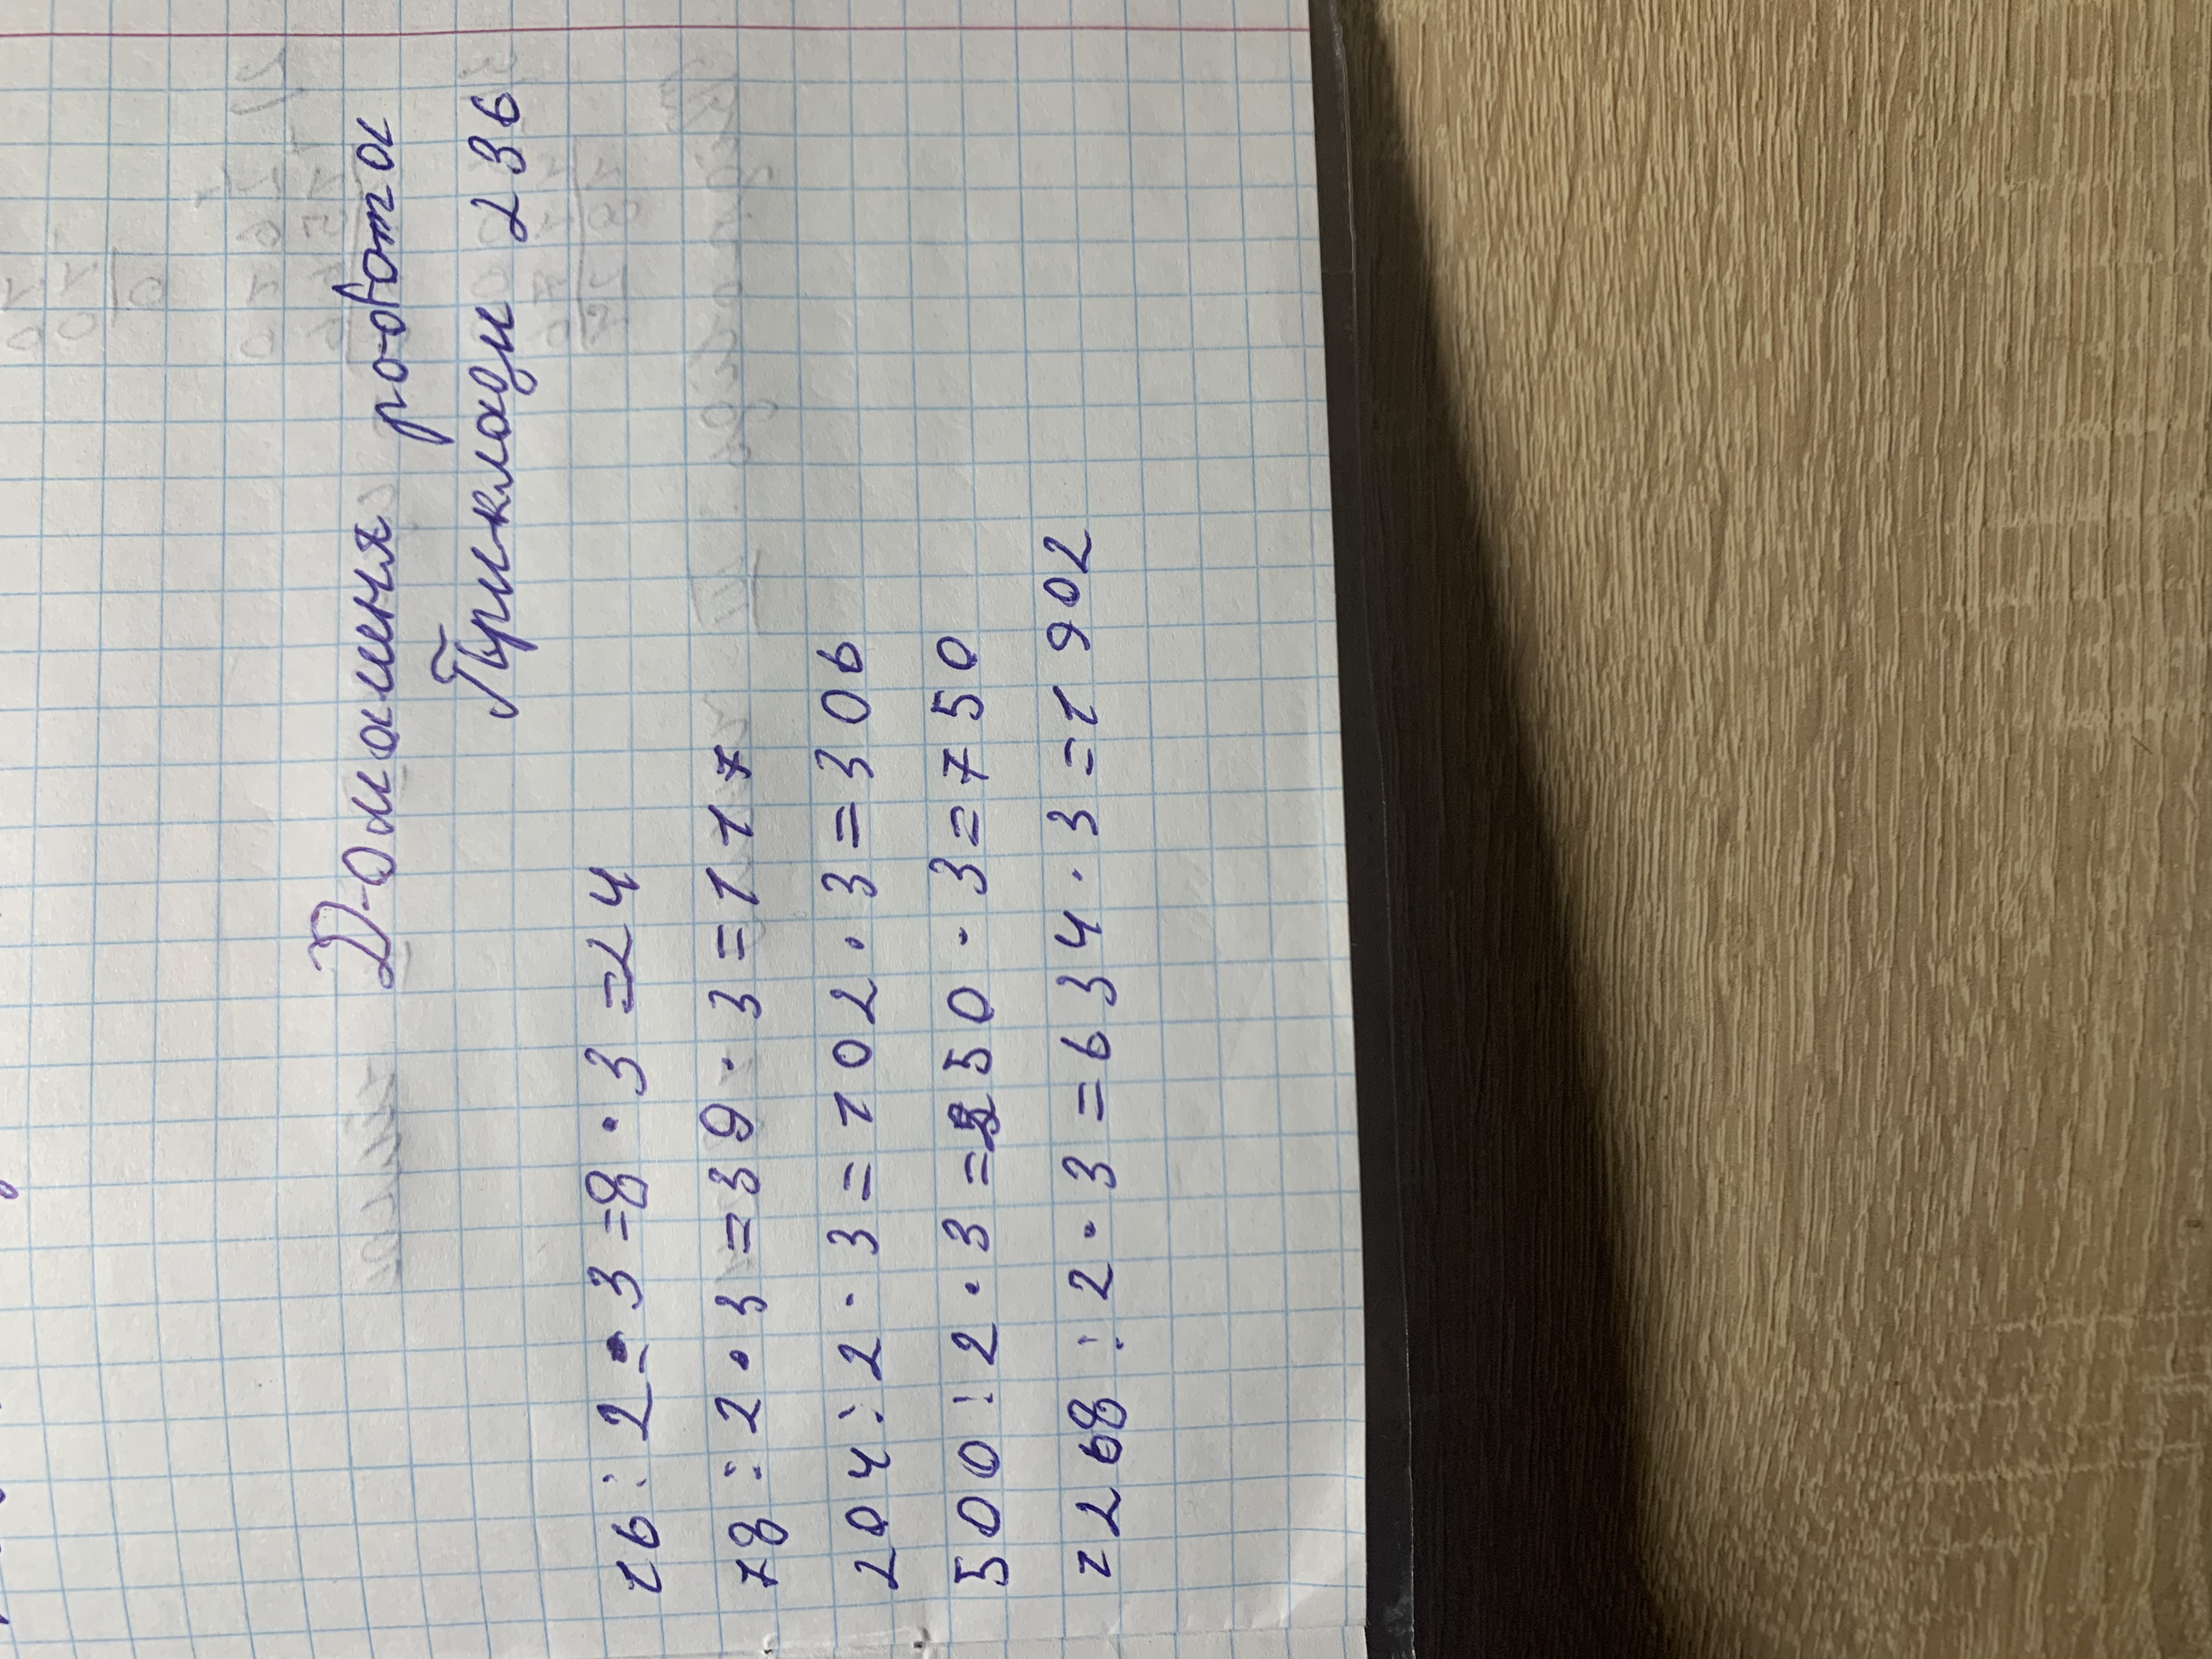 Домашня робота
Приклади 236
16 : 2 · 3 = 8 · 3 = 24
78 : 2 · 3 = 39 · 3 = 117
204 : 2 · 3 = 102 · 3 = 306
500 : 2 · 3 = 250 · 3 = 750
1268 : 2 · 3 = 634 · 3 = 1902